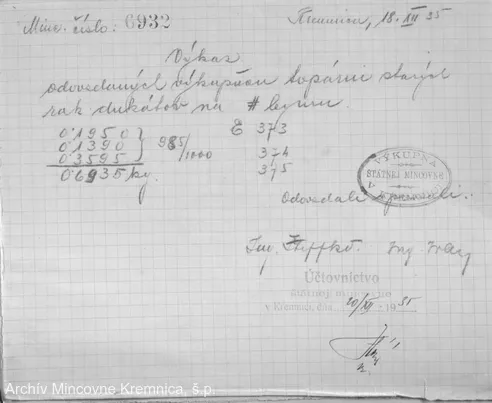 Minc. číslo: 6932
Kremnica, 18. XII 35
Výkaz
odovzdaných výkupňou starých
rak. dukátov na
0'1950
0'1390
0'3595
0'6935 kg.
985/1000
E 373
374
375
VÝKUPŇA
ŠTÁTNEJ MINCOVNE
V KREMNICI
Odovzdali
Ing.
Ing.
Účtovníctvo
štátnej mincovne
v Kremnici, dňa 20/XII 1935
Archív Mincovne Kremnica, š.p.